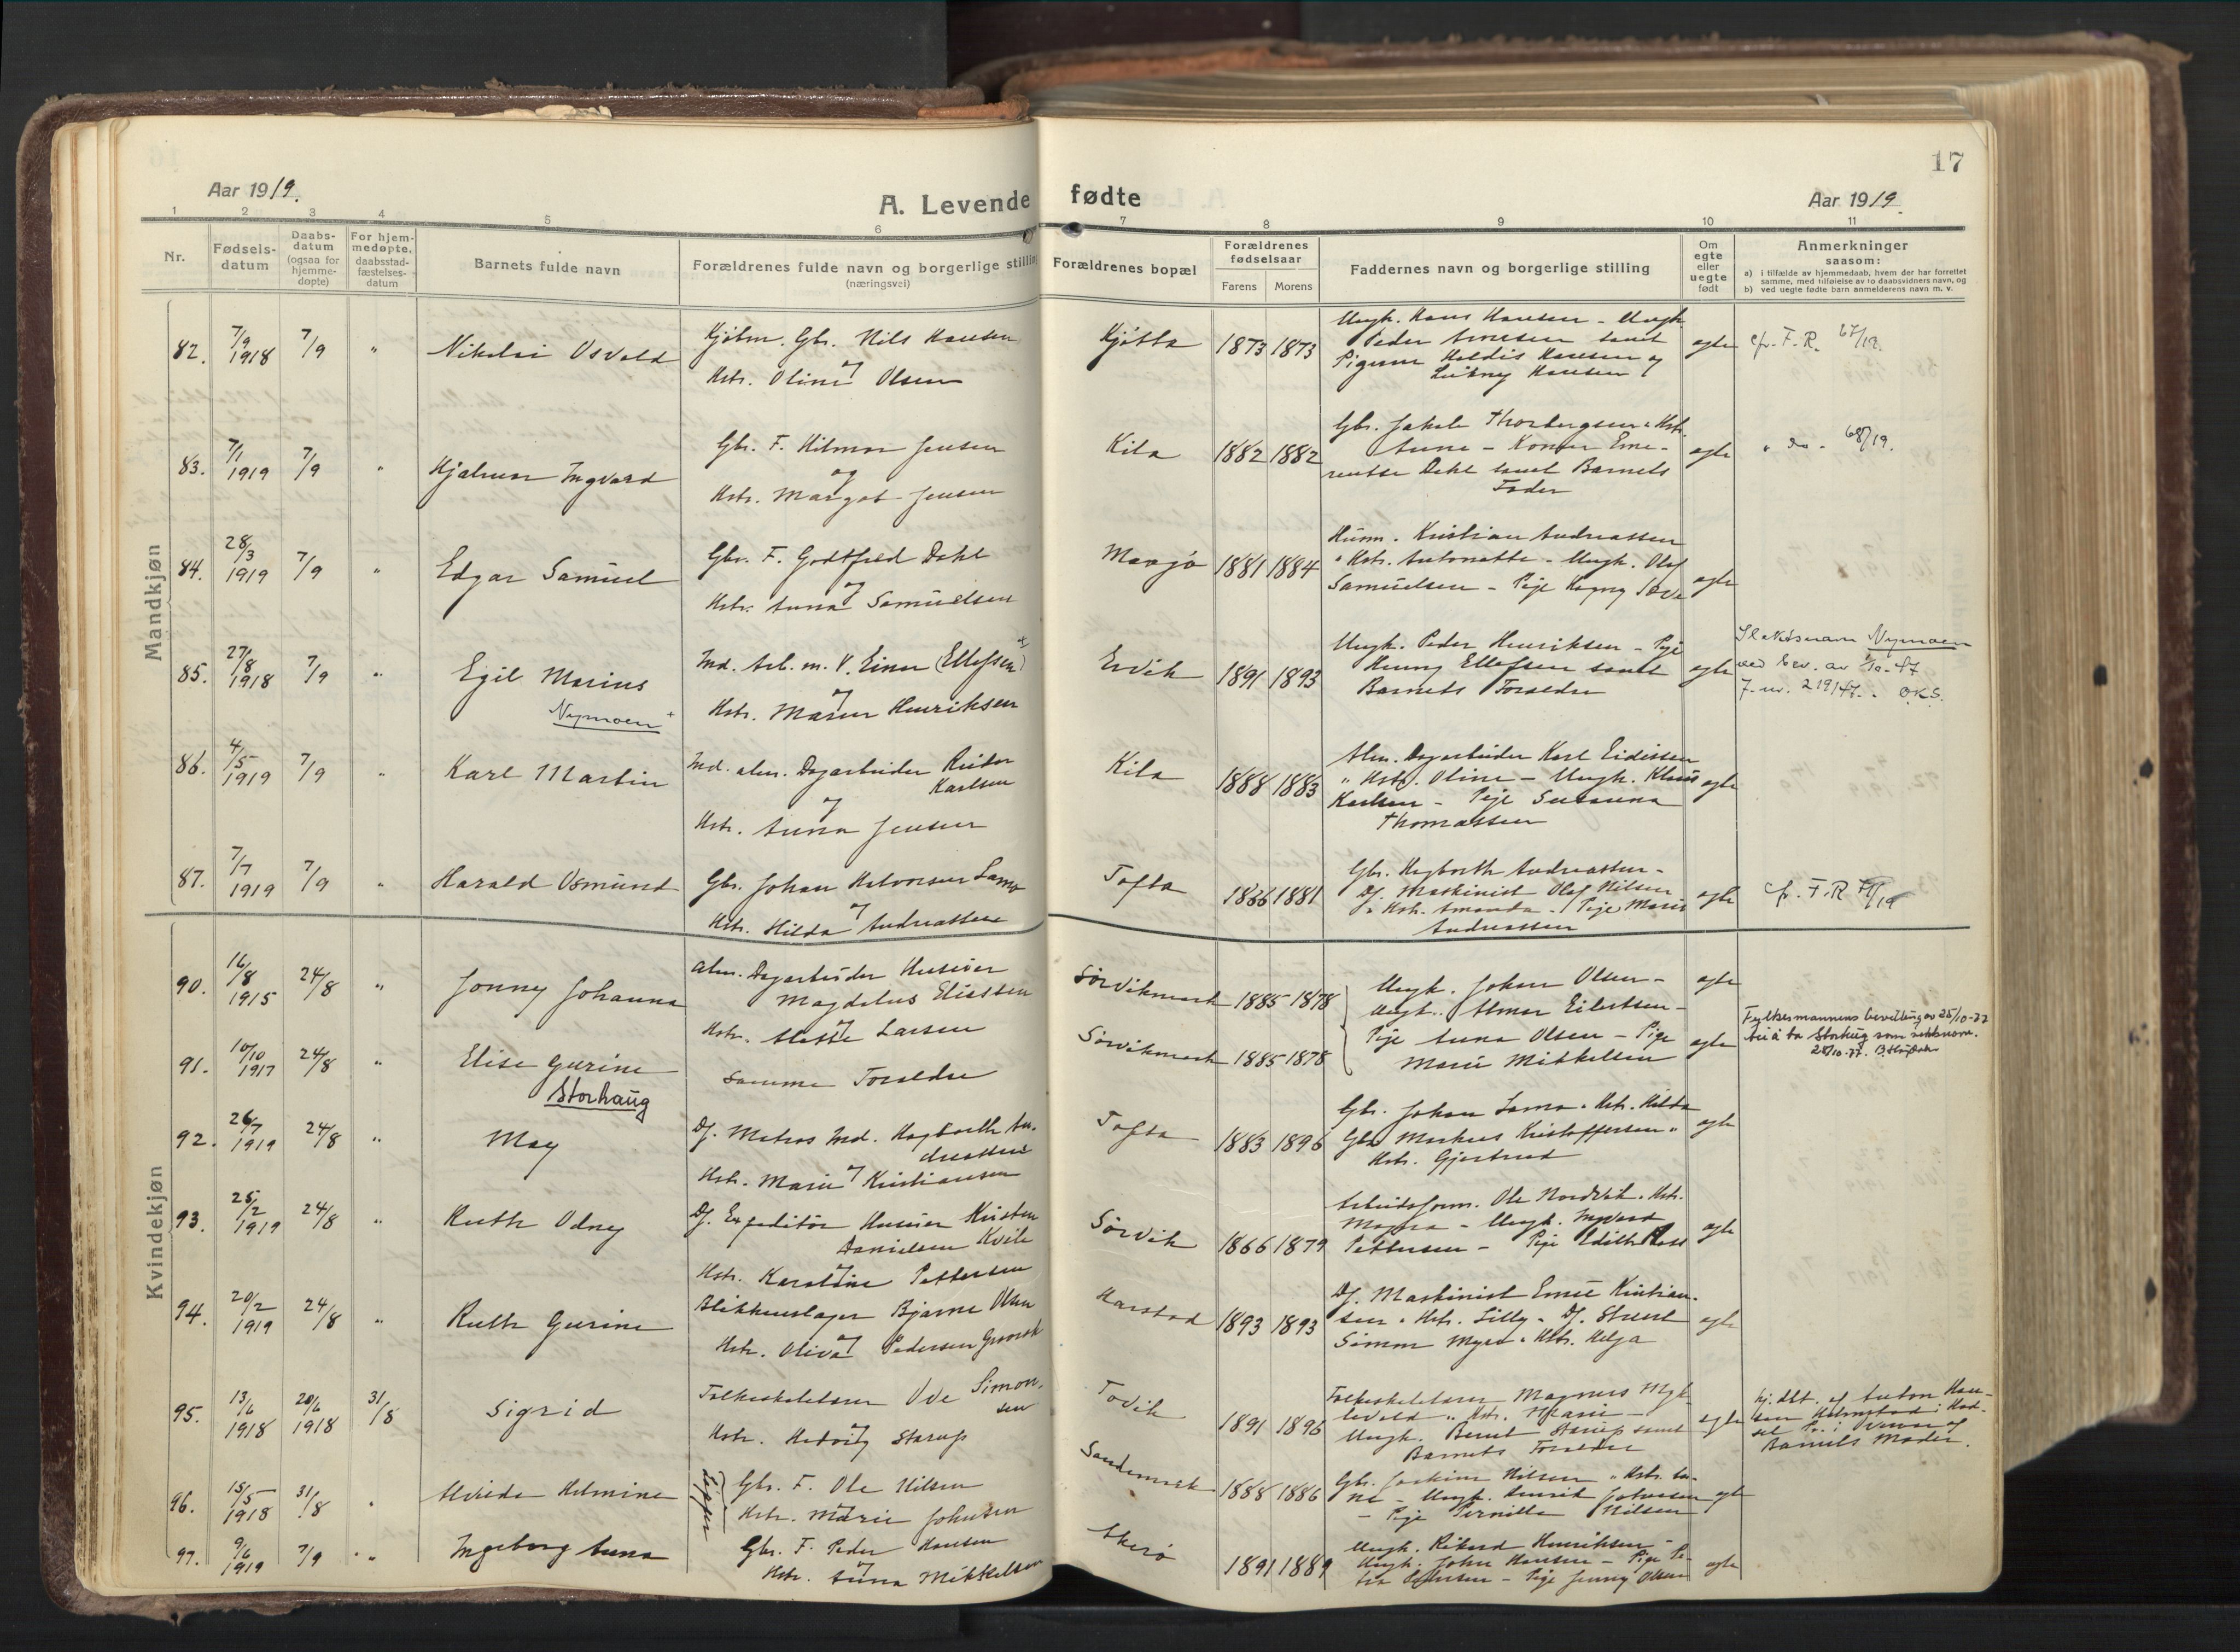 17
Aar 1919.
A. Levende fødte
Aar 1919.
1 2 3 4 5 6 7 8 9 10 11
Nr.
Fødselsdatum
Daabsdatum
(ogsaa for
hjemmedøpte)
For hjemmedøpte,
daabsstadfæstelsesdatum
Barnets fulde navn
Forældrenes fulde navn og borgerlige stilling
(næringsvei)
Forældrenes bopæl
Forældrenes
fødselsaar
Farens Morens
Faddernes navn og borgerlige stilling
Om
egte
eller
uegte
født
Anmerkninger
saasom:
a) i tilfælde av hjemmedaab, hvem der har forrettet
samme, med tilføielse av to daabsvidners navn, og
b) ved uegte fødte barn anmelderens navn m. v.
Mandkjøn
82. 7/9 1918 7/9 " Nikolai Osvald
Kjøbm. Gbr. Nils Hansen
og
Hstr. Oline Olsen
Kjøtta 1873 1873
Ungk. Hans Hansen – Ungk.
Peder Arnesen samt
Pigerne Haldis Hansen og
Hansen
egte cfr. F. R. 67/19.
83. 7/1 1919 7/9 " Hjalmar Ingvard
Gbr. F. Hilmar Jensen
og
Hstr. Margot Jensen
Kila 1882 1882
Gbr. Jakob Thorbergsen " Hstr.
Anne – Konen Eme-
rentse Dahl samt Barnets
Fader
egte " do – 68/19.
84. 28/3 1919 7/9 " Edgar Samuel
Gbr. F. Godtfred Dahl
og
Hstr. Anna Samuelsen
1881 1884
Husm. Kristian Andreassen
" Hstr. Antonette – Ungk. Olaf
Samuelsen – Pige
egte
85. 27/8 1918 7/9 " Egil Marius
Nymoen +
Ind. Arb. m. V. Einar (Ellefsen) +
og
Hstr. Maren Henriksen
Ervik 1891 1893
Ungk. Peder Henriksen – Pige
Henny Ellefsen samt
Barnets Forældre
egte
Slektsnavn Nymoen
ved bev. av
J. nr. 219/47. O.K.S.
86. 4/5 1919 7/9 " Karl Martin
Ind. alm. Dagarbeider Reidar
Karlsen
og
Hstr. Anna Jensen
Kila 1888 1883
Alm. Dagarbeider Karl Eidissen
" Hstr. Oline – Ungk. Klaus
Karlsen – Pige Susanna
Thomassen
egte
87. 7/7 1919 7/9 " Harald Osmund
Gbr. Johan Halvorsen Lama
og
Hstr. Hilda Andreassen
Tofta 1866 1881
Gbr. Hagbarth Andreassen –
Df. Maskinist Olaf Nilsen
" Hstr. Amanda – Pige Marie
Andreassen
egte cfr. F. R.
Kvindekjøn
90. 16/8 1915 24/8 " Jonny Johanna
Alm. Dagarbeider Huseier
Magdelus Eliassen
og
Hstr. Mette Larsen
Sørvikmark 1885 1878
Ungk. Johan Olsen –
Ungk. Almar Eilertsen –
egte
91. 10/10 1917 24/8 " Elise Gurine
Storhaug
Samme Forældre
Sørvikmark 1885 1878
Pige Anna Olsen – Pige
Marie Mikkelsen
egte
Fylkesmannens bevilling av 25/10-77
til å ta Storhaug som
28/10-77.
92. 26/7 1919 24/8 " May
Df. Matros Ind. Hagbarth An-
dreassen
og
Hstr. Marie Kristiansen
Tofta 1883 1896
Gbr. Johan Lama " Hstr. Hilda
Gbr. Markus Kristoffersen "
Hstr. Gjertrud
egte
93. 25/2 1919 24/8 " Ruth Odny
Df. Expeditør Huseier Kristen
Danielsen Kvile
og
Hstr. Karoline Pettersen
Sørvik 1866 1879
Arbeidsform. Ole Nordvik " Hstr.
Magna – Ungk. Ingvard
Pettersen – Pige Edith
egte
94. 20/2 1919 24/8 " Ruth Gurine
Blikkenslager Bjarne Olsen
og
Hstr. Oliva Pedersen
Harstad 1893 1893
Df. Maskinist Emil Kristian-
sen " Hstr. Lilly – Df. Stuert
Simon Myre " Hstr. Helga
egte
95. 13/6 1918 20/6 1918 31/8 Sigrid
Folkeskolelærer Simon-
sen
Hstr. Hedvig Starup
1891 1896
Folkeskolelærer Magnus Myk-
levold " Hstr. Marie –
Ungk. Bernt Starup samt
Barnets Forældre
egte
hj. dbt. af Anton Han-
sen i Had-
sel Pr. i
Barnets Moder.
96. 15/5 1918 31/8 " Alvilde Helmine
Gbr. F. Ole Nilsen
og
Hstr. Marie Johnsen
Sandemark 1888 1886
Gbr. Joakim Nilsen " Hstr. An-
ne – Ungk. Johnsen
– Pige Pernilla Nilsen
egte
97. 9/6 1919 7/9 " Ingeborg Anna
Gbr. F. Peder Hansen
og
Hstr. Anna Mikkelsen
1891 1889
Ungk. Rikard Henriksen –
Ungk. Johan Hansen – Pige Pe-
tra Pettersen – Pige Jenny Olsen
egte